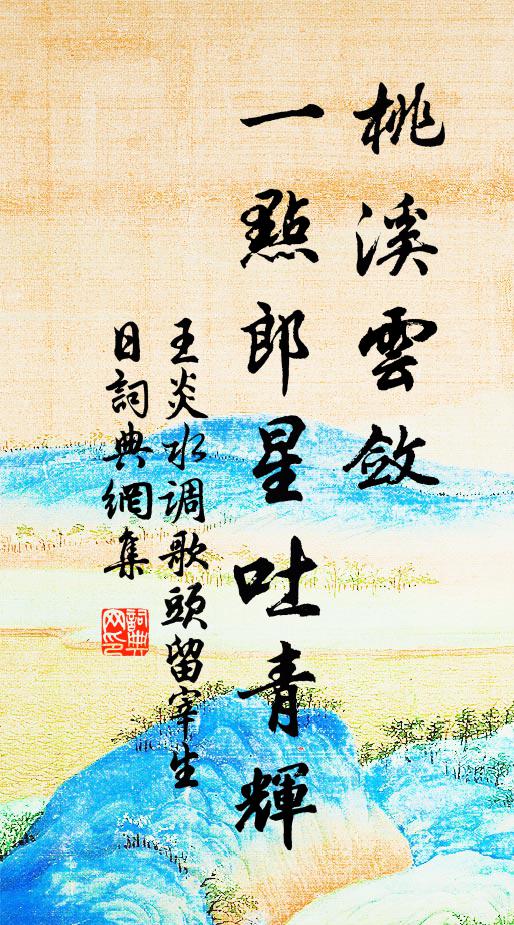 桃溪雲斂
一點郎星吐青輝
王炎水调歌頭留宰生
日詞典網集
詞典网印